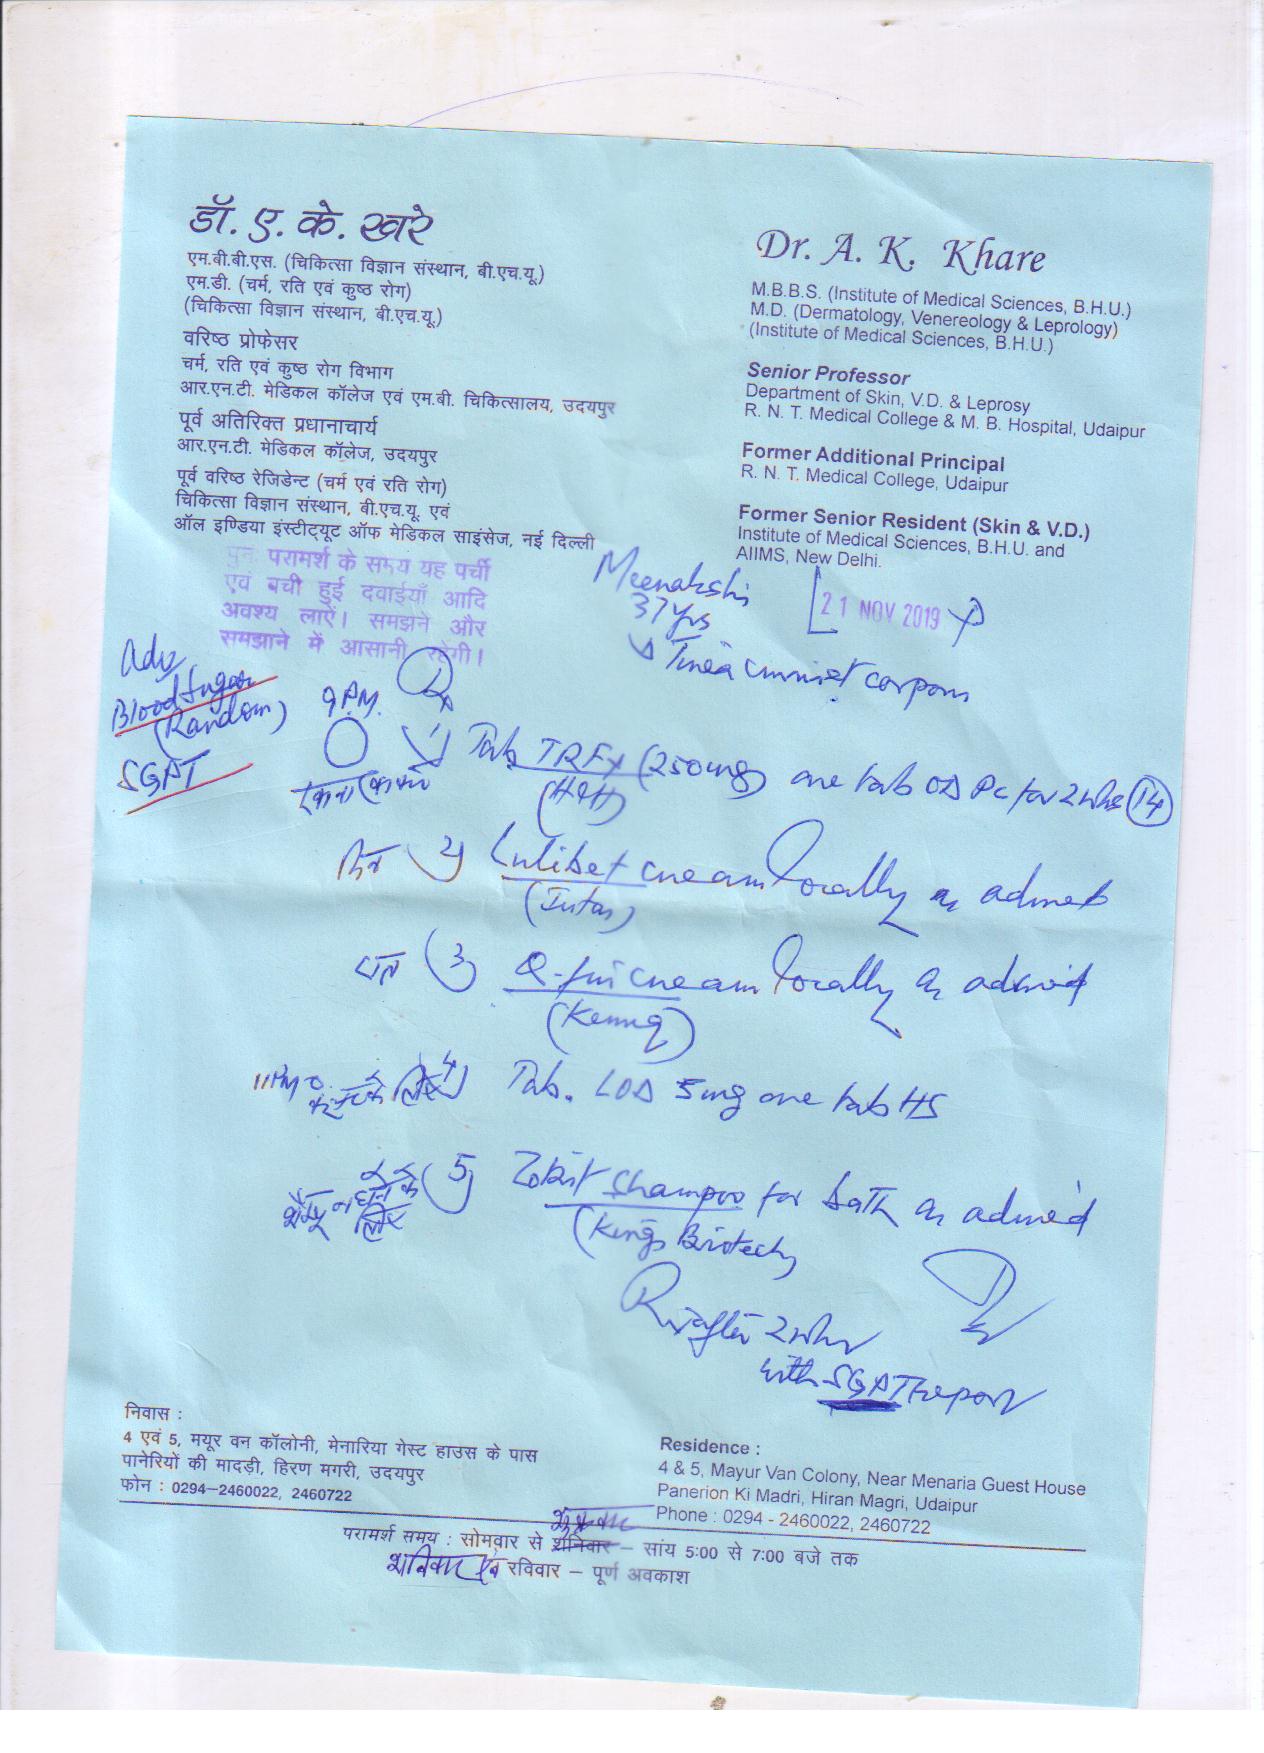 डॉ. ए. के. खरे
एम.बी.बी.एस. (चिकित्सा विज्ञान संस्थान, बी.एच.यू.)
एम.डी. (चर्म, रति एवं कुष्ठ रोग)
(चिकित्सा विज्ञान संस्थान, बी.एच.यू.)
वरिष्ठ प्रोफेसर
चर्म, रति एवं कुष्ठ रोग विभाग
आर.एन.टी. मेडिकल कॉलेज एवं एम.बी. चिकित्सालय, उदयपुर
पूर्व अतिरिक्त प्रधानाचार्य
आर.एन.टी. मेडिकल कॉलेज, उदयपुर
पूर्व वरिष्ठ रेजिडेन्ट (चर्म एवं रति रोग)
चिकित्सा विज्ञान संस्थान, बी.एच.यू. एवं
ऑल इण्डिया इंस्टीट्यूट ऑफ मेडिकल साइंसेज, नई दिल्ली
Dr. A. K. Khare
M.B.B.S. (Institute of Medical Sciences, B.H.U.)
M.D. (Dermatology, Venereology & Leprology)
(Institute of Medical Sciences, B.H.U.)
Senior Professor
Department of Skin, V.D. & Leprosy
R. N. T. Medical College & M. B. Hospital, Udaipur
Former Additional Principal
R. N. T. Medical College, Udaipur
Former Senior Resident (Skin & V.D.)
Institute of Medical Sciences, B.H.U. and
AIIMS, New Delhi.
पुनः परामर्श के समय यह पर्ची
एवं बची हुई दवाईयाँ आदि
अवश्य लाऐं। समझने और
समझाने में आसानी रहेगी।
Meenakshi
37 yrs
21 NOV 2019
Tinea corporis
Adv
Blood Sugar
(Random)
SGPT
9 P.M.
1) Tab. (250mg) one tab OD PC for 2 wks (14)
2) Lulibet cream locally as advised
(Intas)
3) cream locally as advised
11 PM
4) Tab. 5mg one tab HS
5) Shampoo for bath as advised
(Kings Biotech)
R/v after 2 wks
with SGPT report
निवास :
4 एवं 5, मयूर वन कॉलोनी, मेनारिया गेस्ट हाउस के पास
पानेरियों की मादड़ी, हिरण मगरी, उदयपुर
फोन : 0294–2460022, 2460722
Residence :
4 & 5, Mayur Van Colony, Near Menaria Guest House
Panerion Ki Madri, Hiran Magri, Udaipur
Phone : 0294 - 2460022, 2460722
शुक्रवार
परामर्श समय : सोमवार से शनिवार – सांय 5:00 से 7:00 बजे तक
शनिवार एवं रविवार – पूर्ण अवकाश